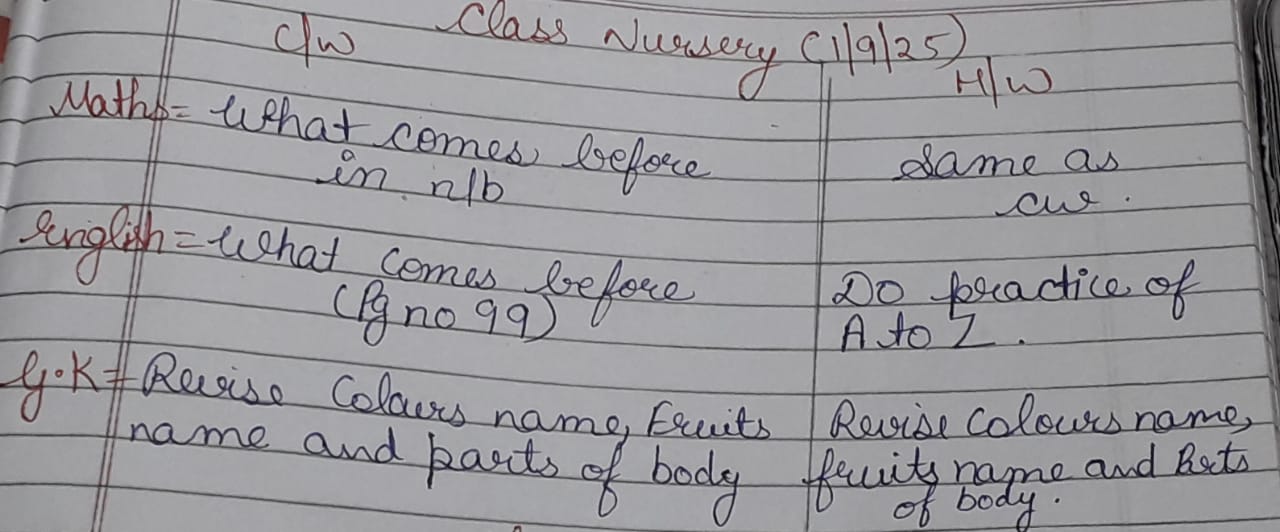 Class Nursery (1/9/25)
C/W H/W
Maths = What comes before
in n/b
Same as
cw.
English = What comes before
(Pg no 99)
Do practice of
A to Z.
G.K = Revise Colours name, Fruits
name and parts of body
Revise Colours name,
fruits name and Parts
of body.